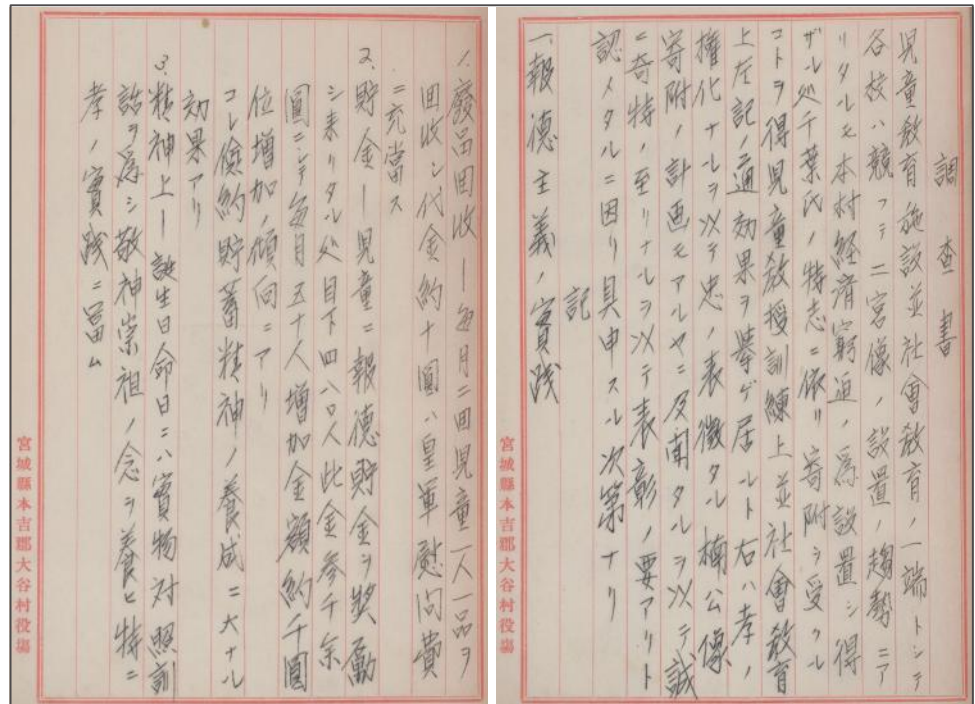 調査書
児童敎育施設並社會敎育ノ一端トシテ
各校ハ競フテ二宮像ノ設置ノ趨勢ニア
リタルモ本村経済窮迫ノ爲設置シ得
ザル処千葉氏ノ特志ニ依リ寄附ヲ受クル
コトヲ得児童敎授訓練上並社會敎育
上左記ノ通効果ヲ挙ゲ居ルト右ハ孝ノ
権化ナルヲ以テ忠ノ表徴タル楠公像
寄附ノ計画モアルヤニ及聞タルヲ以テ誠
ニ奇特ノ至リナルヲ以テ表彰ノ要アリト
認メタルニ因リ具申スル次第ナリ
記
一、報徳主義ノ實践
宮城縣本吉郡大谷村役場
1、廢品回收ー毎月二回児童一人一品ヲ
回收シ代金約十圓ハ皇軍慰問費
ニ充當ス
2、貯金ー児童ニ報徳貯金ヲ奬勵
シ来リタル処目下四八〇人此金参千余
圓ニシテ毎月五十人増加金額約千圓
位増加ノ傾向ニアリ
コレ倹約貯蓄精神ノ養成ニ大ナル
効果アリ
3、精神上ー誕生日命日ニハ實物対照訓
話ヲ爲シ敬神崇祖ノ念ヲ養ヒ特ニ
孝ノ實践ニ畱ム
宮城縣本吉郡大谷村役場